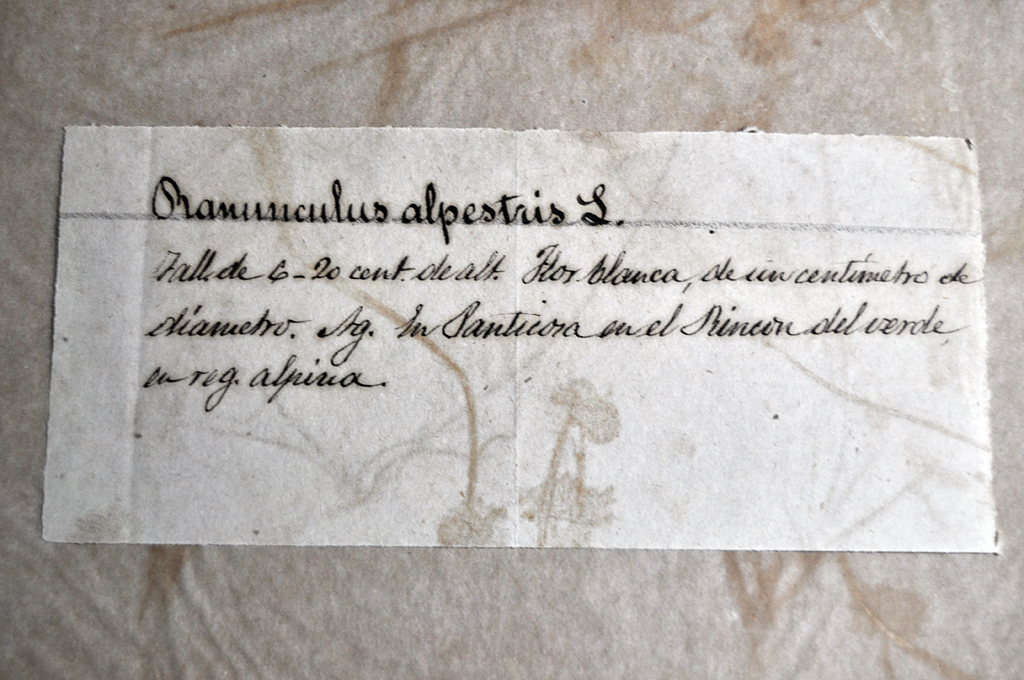 Ranunculus alpestris L.
Tall. de 6-20 cent. de alt. Flor blanca, de un centímetro de
diámetro. Ag. En Panticosa en el Rincon del verde,
en reg. alpina.